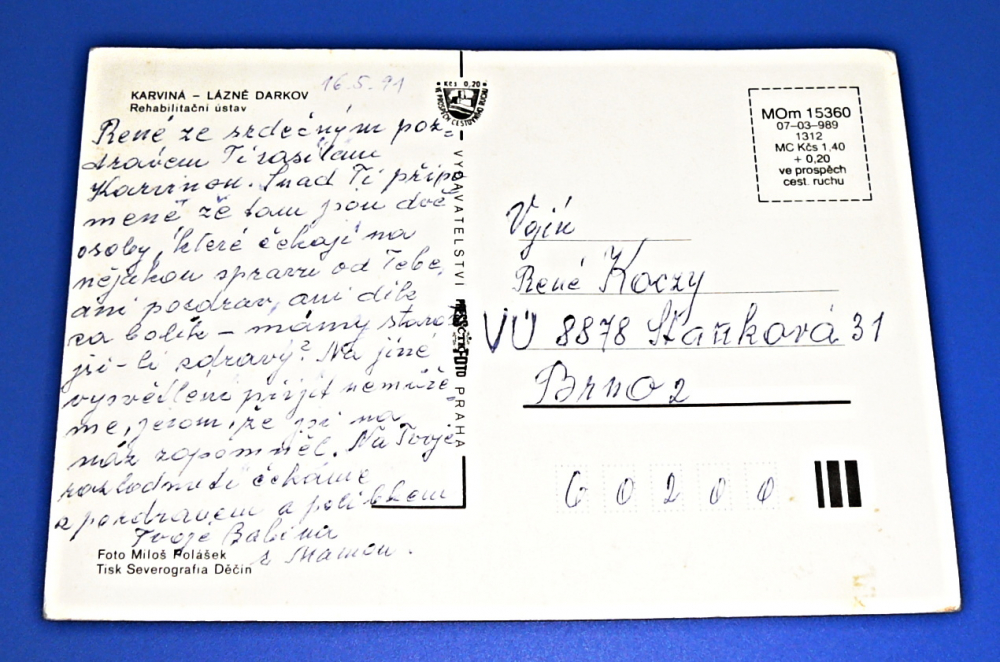 16.5.91
KARVINÁ – LÁZNĚ DARKOV
Rehabilitační ústav
René ze srdečným poz-
dravem Ti zasílám
Karvinou. Snad Ti připo
mene že tam jsou dvě
osoby, které čekají na
nějakou zprávu od Tebe,
ani pozdrav, ani dík
za balík – mámy starost
jsi-li zdravý? Na jiné
vysvětlení přijít nemůže-
me, jenom, že jsi na
nás zapomněl. Na Tvoje
rozhodnutí čekáme
z pozdravem a polibkem
Tvoje Babina
z Mamou.
Foto Miloš Polášek
Tisk Severografia Děčín
Kčs 0,20
VE PROSPĚCH CESTOVNÍHO RUCHU
VYDAVATELSTVÍ PRESSFOTO PRAHA
MOm 15360
07–03–989
1312
MC Kčs 1,40
+ 0,20
ve prospěch
cest. ruchu
Vojín
René Koczy
VÚ 8878 Staňková 31
Brno 2
60200